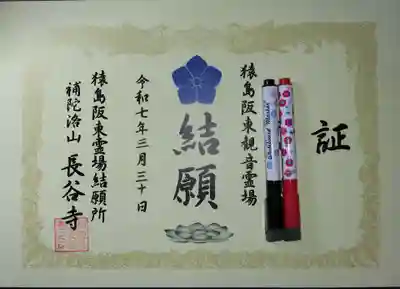 証
猿島阪東観音霊場
結願
令和七年三月三十日
猿島阪東霊場結願所
補陀洛山 長谷寺